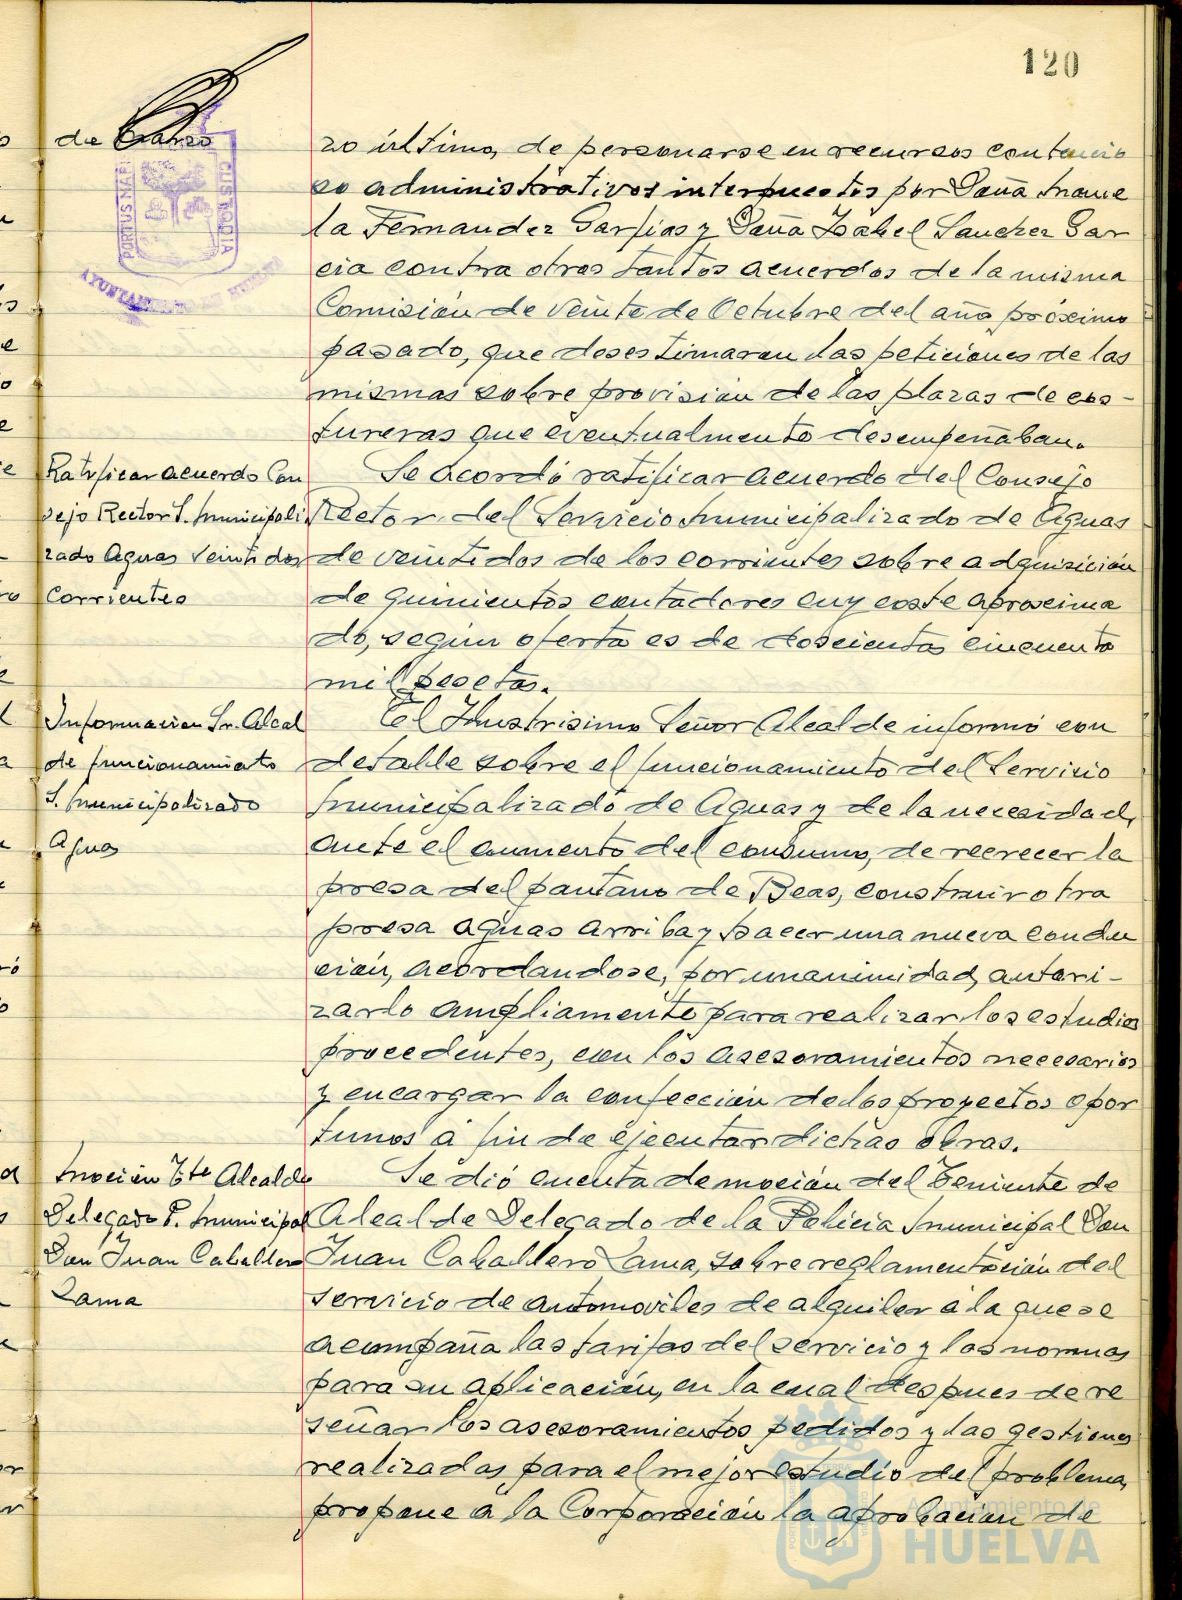 120
de Marzo
PORTUS MARIS
CUSTODIA
AYUNTAMIENTO DE HUELVA
zo último, de personarse en recursos contencio
so administrativos interpuestos por Doña Manue
la Fernandez Garfias y Doña Isabel Sanchez Gar
cia contra otros tantos acuerdos de la misma
Comisión de veinte de Octubre del año próximo
pasado, que desestimaron las peticiones de las
mismas sobre provisión de las plazas de cos-
tureras que eventualmente desempeñaban.
Ratificar acuerdo Con
sejo Rector S. Municipali
zado Aguas veintidos
corrientes
Se acordó ratificar acuerdo del Consejo
Rector del Servicio Municipalizado de Aguas
de veintidos de los corrientes sobre adquisición
de quinientos contadores cuy coste aproxima
do, según oferta es de doscientas cincuenta
mil pesetas.
Informacion Sr. Alcal
de funcionamiento
S. Municipalizado
Aguas
El Ilustrisimo Señor Alcalde informó con
detalle sobre el funcionamiento del Servicio
Municipalizado de Aguas y de la necesidad,
ante el aumento del consumo, de recrecer la
presa del pantano de Beas, construir otra
presa aguas arriba y hacer una nueva condu
ción, acordandose, por unanimidad, autori-
zarlo ampliamente para realizar los estudios
procedentes, con los asesoramientos necesarios
y encargar la confección de los proyectos opor
tunos á fin de ejecutar dichas obras.
Moción Tte Alcalde
Delegado P. Municipal
Don Juan Caballero
Lama
Se dió cuenta de moción del Teniente de
Alcalde Delegado de la Policia Municipal Don
Juan Caballero Lama, sobre reglamentación del
servicio de automoviles de alquiler á la que se
acompaña las tarifas del servicio y las normas
para su aplicación, en la cual despues de re
señar los asesoramientos pedidos y las gestiones
realizadas para el mejor estudio del problema,
propone a la Corporación la aprobación de
Ayuntamiento de
HUELVA